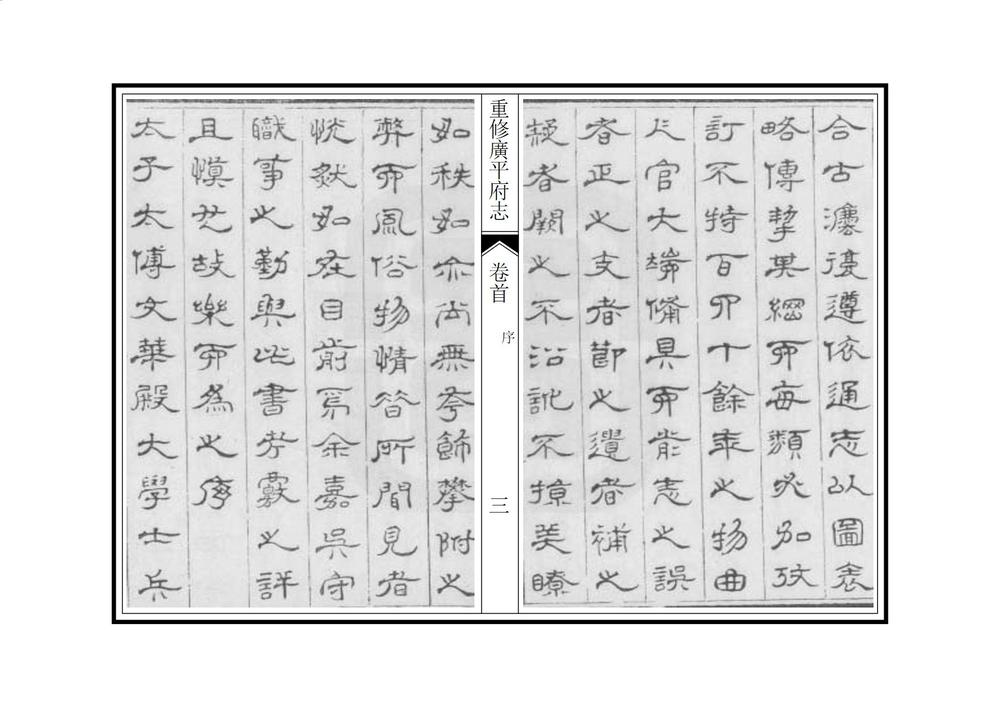 合古灋復遵依通志以圖表
略傳挈其綱而每類必加攷
訂不特百四十餘年之物曲
人官大端備具而前志之誤
者正之支者節之遺者補之
疑者闕之不沿訛不掠美瞭
重修廣平府志
卷首
序
三
如秩如亦尚無夸飾攀附之
弊而風俗物情皆所聞見者
恍然如在目前焉余嘉吳守
職事之勤與此書考覈之詳
且慎也故樂而為之序
太子太傅文華殿大學士兵